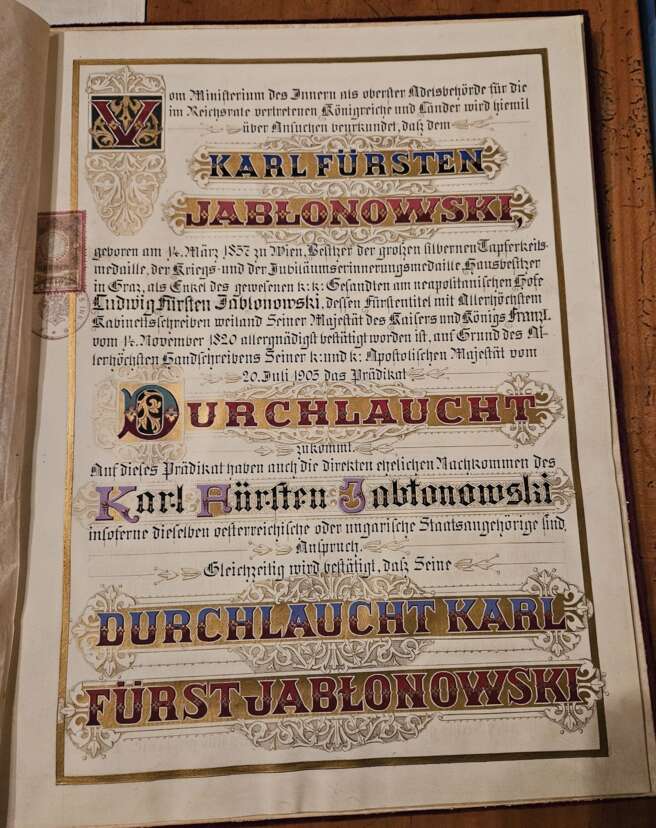 Vom Ministerium des Innern als oberster Adelsbehörde für die
im Reichsrate vertretenen Königreiche und Länder wird hiemit
über Ansuchen beurkundet, daß dem
KARL FÜRSTEN
JABŁONOWSKI,
geboren am 14. März 1857 zu Wien, Besitzer der großen silbernen Tapferkeits-
medaille, der Kriegs- und der Jubiläumserinnerungsmedaille Hausbesitzer
in Graz, als Enkel des gewesenen k: k: Gesandten am neapolitanischen Hofe
Ludwig Fürsten Jabłonowski, dessen Fürstentitel mit Allerhöchstem
Kabinettsschreiben weiland Seiner Majestät des Kaisers und Königs Franz I.
vom 14. November 1820 allergnädigst bestätigt worden ist, auf Grund des Al-
lerhöchsten Handschreibens Seiner k: und k: Apostolischen Majestät vom
20. Juli 1905 das Prädikat
DURCHLAUCHT
zukommt.
Auf dieses Prädikat haben auch die direkten ehelichen Nachkommen des
Karl Fürsten Jabłonowski
insoferne dieselben oesterreichische oder ungarische Staatsangehörige sind,
Anspruch.
Gleichzeitig wird bestätigt, daß Seine
DURCHLAUCHT KARL
FÜRST JABŁONOWSKI